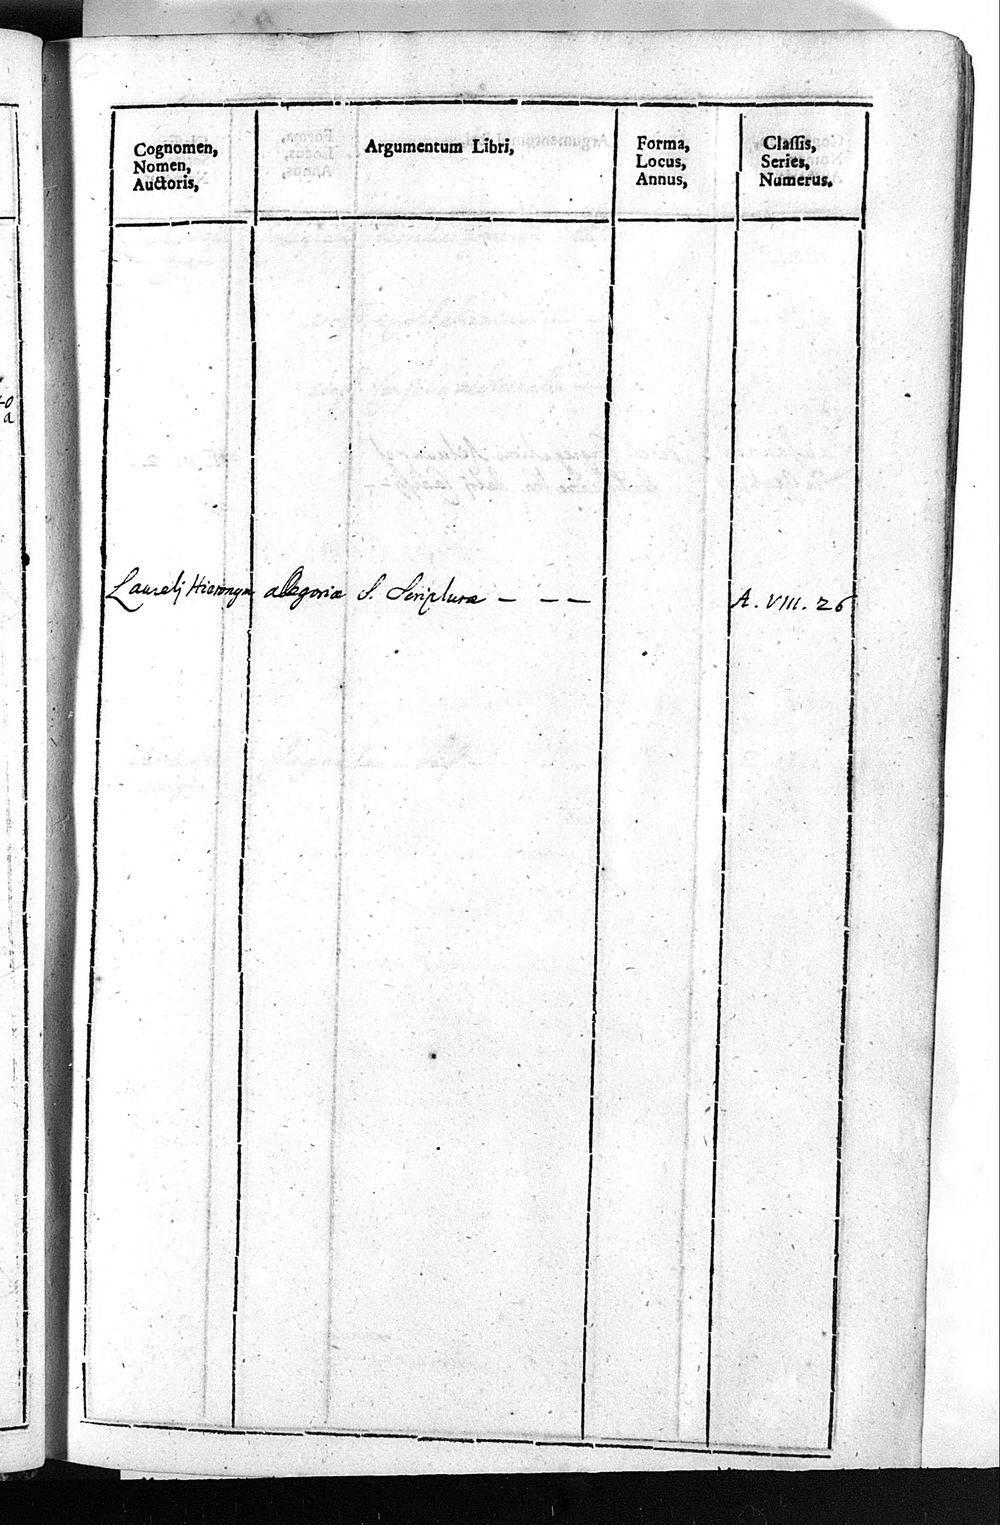 Cognomen,
Nomen,
Auctoris,
Argumentum Libri,
Forma,
Locus,
Annus,
Classis,
Series,
Numerus.
Laurelj Hieronym allegoriæ S. Scripturæ — — —
A. VIII. 26